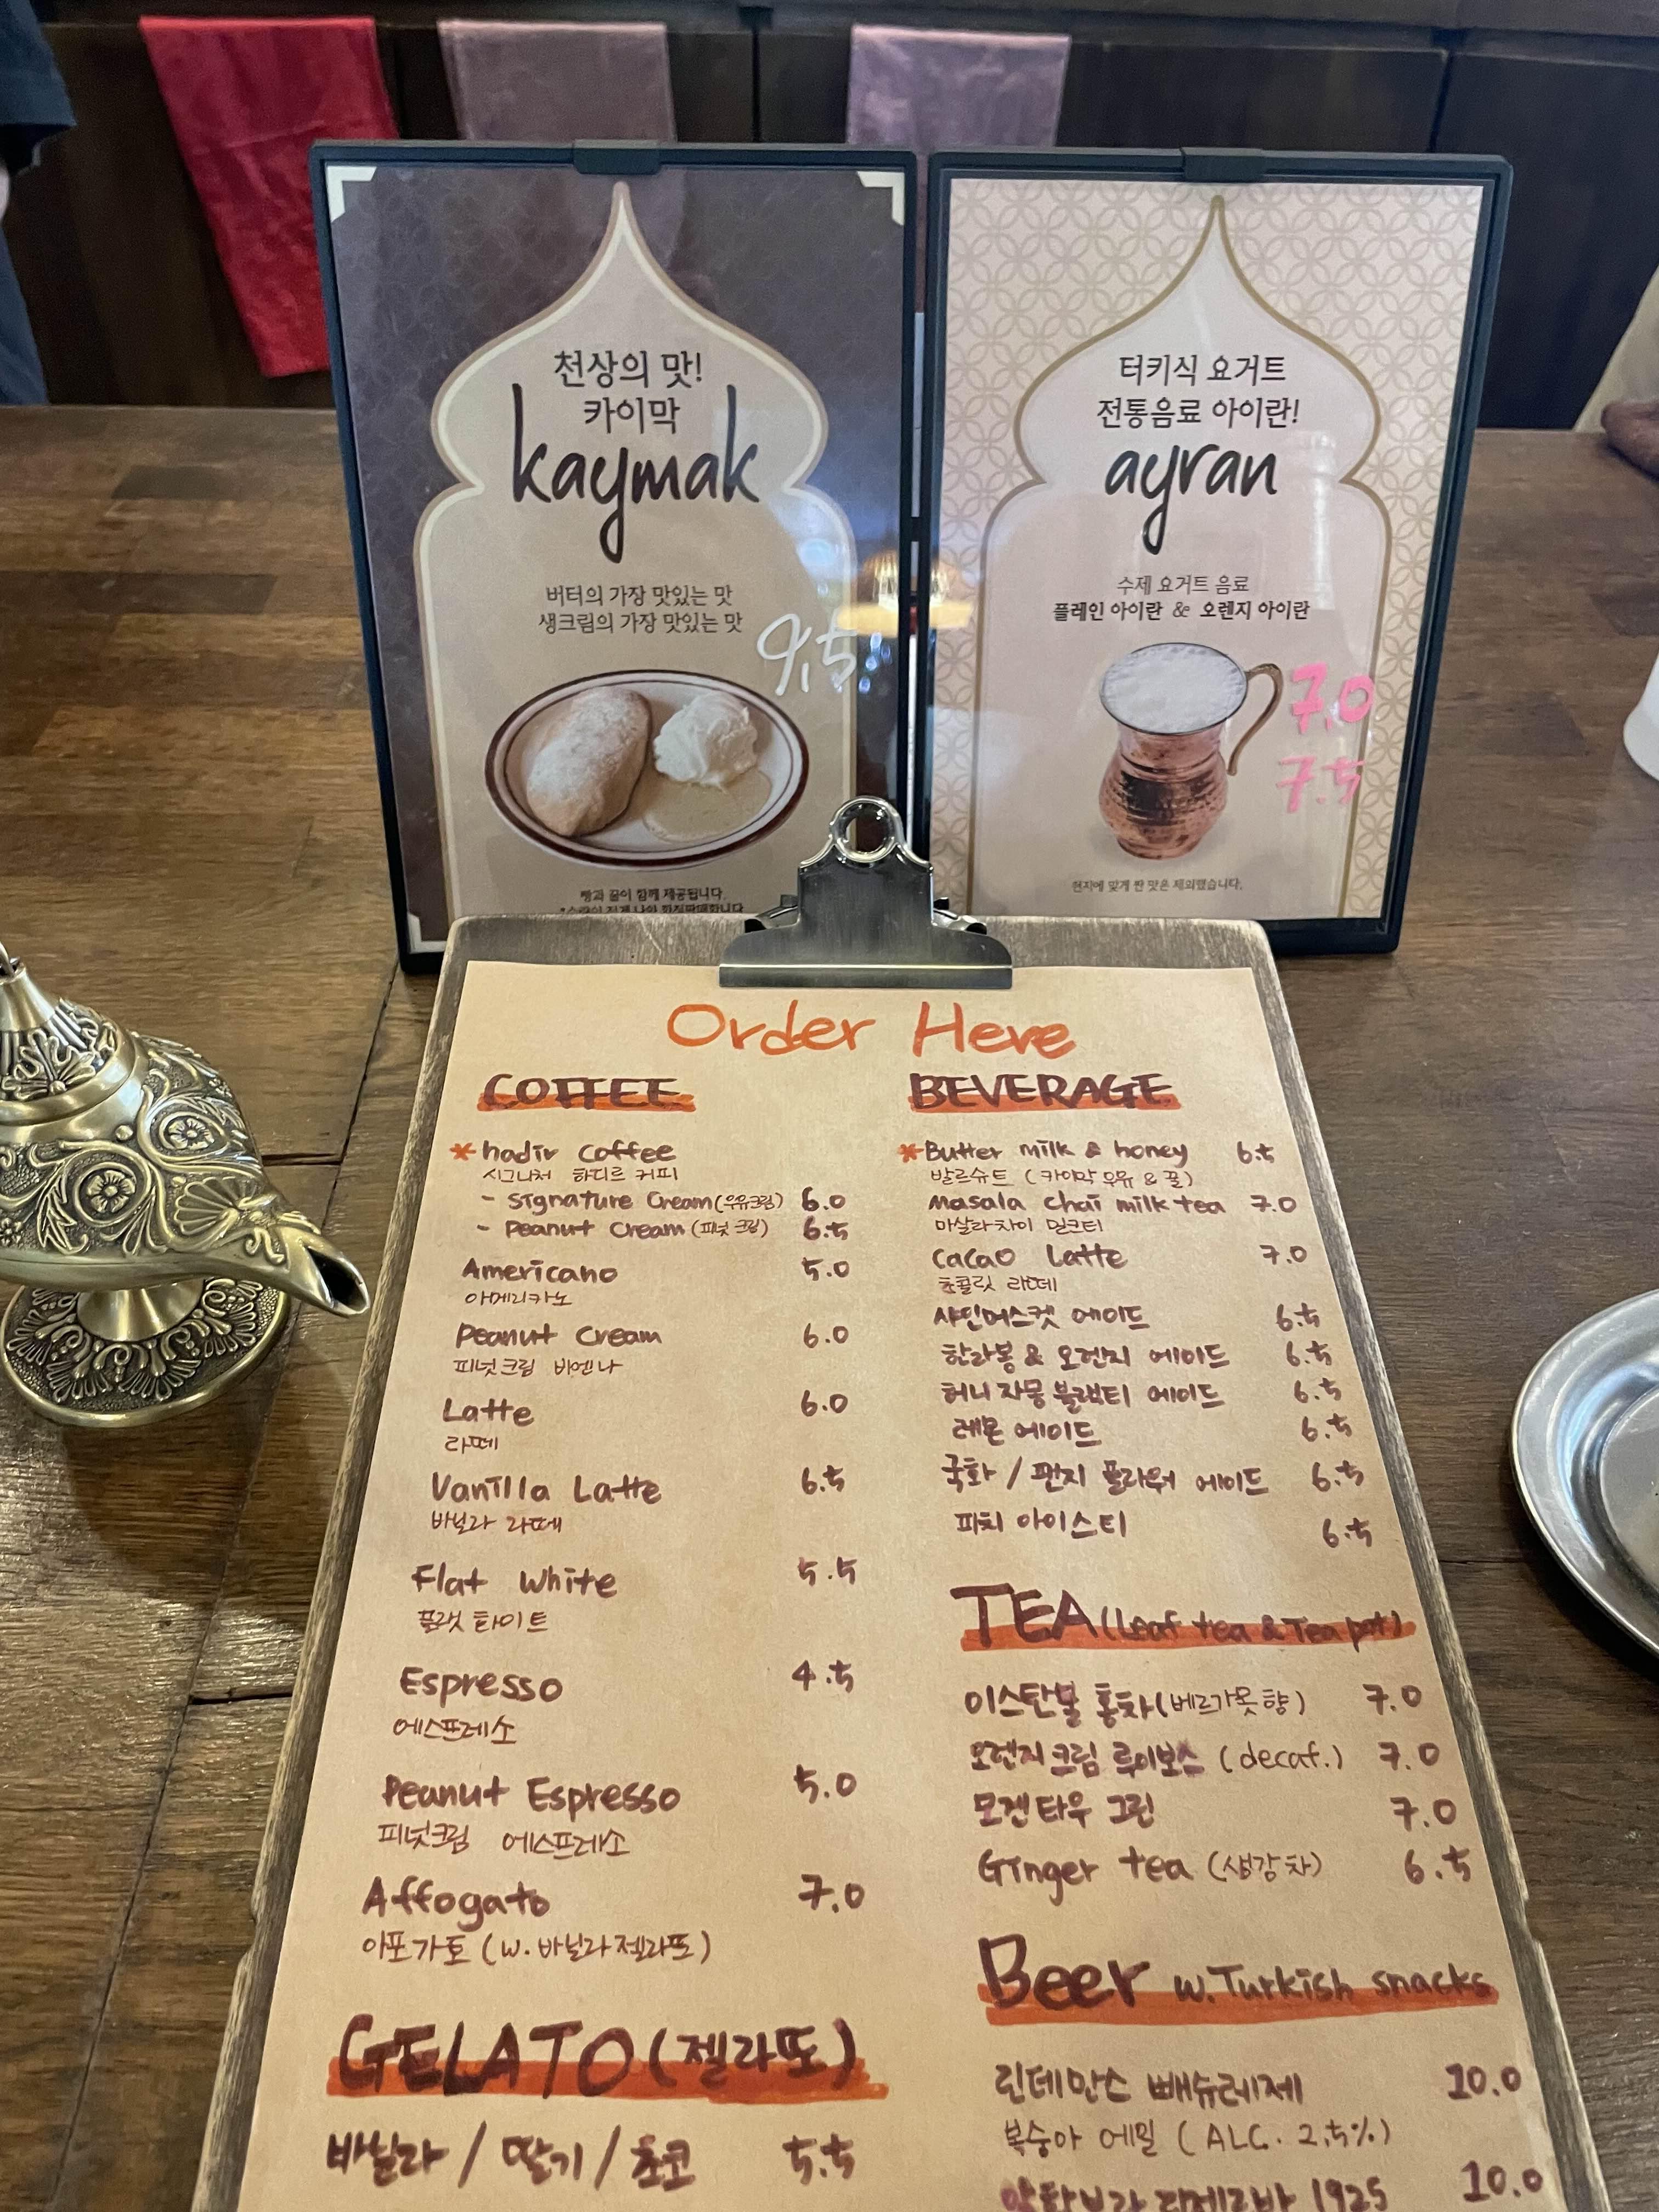 천상의 맛!
카이막
kaymak
버터의 가장 맛있는 맛
생크림의 가장 맛있는 맛
9.5
빵과 꿀이 함께 제공됩니다.
터키식 요거트
전통음료 아이란!
ayran
수제 요거트 음료
플레인 아이란 & 오렌지 아이란
7.0
7.5
현지에 맞게 짠 맛은 제외했습니다.
Order Here
COFFEE
* hadir coffee
시그니처 하디르 커피
- Signature Cream (우유크림) 6.0
- Peanut Cream (피넛 크림) 6.5
Americano 5.0
아메리카노
Peanut Cream 6.0
피넛크림 비엔나
Latte 6.0
라떼
Vanilla Latte 6.5
바닐라 라떼
Flat White 5.5
플랫 화이트
Espresso 4.5
에스프레소
Peanut Espresso 5.0
피넛크림 에스프레소
Affogato 7.0
아포가토 (w. 바닐라젤라또)
GELATO (젤라또)
바닐라 / 딸기 / 초코 5.5
BEVERAGE
* Butter milk & honey 6.5
발르슈트 (카이막 우유 & 꿀)
Masala chai milk tea 7.0
마살라차이 밀크티
Cacao Latte 7.0
초콜릿 라떼
샤인머스켓 에이드 6.5
한라봉 & 오렌지 에이드 6.5
허니자몽블랙티 에이드 6.5
레몬 에이드 6.5
국화 / 팬지 플라워 에이드 6.5
피치 아이스티 6.5
TEA (Leaf tea & Tea pot)
이스탄불 홍차 (베르가못향) 7.0
오렌지크림 루이보스 (decaf.) 7.0
모겐타우 그린 7.0
Ginger tea (생강차) 6.5
Beer w. Turkish snacks
린데만스 뻬슈레제 10.0
복숭아 에일 (ALC. 2.5%)
알함브라 리제르바 1925 10.0